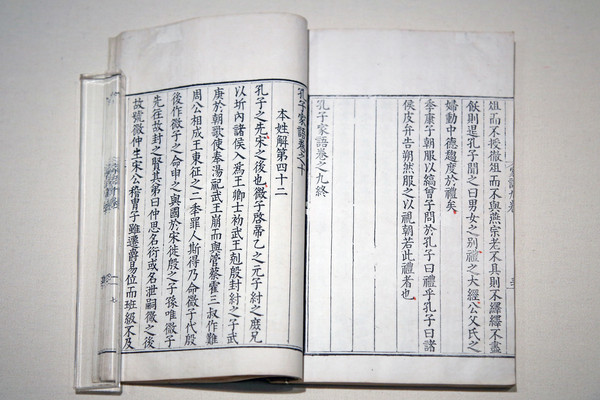 俎而不授徹俎而不與燕宗老不具則不繹繹不盡
飫則退孔子聞之曰男女之別禮之大經公父氏之
婦動中德趨度於禮矣
季康子朝服以縞曾子問於孔子曰禮乎孔子曰諸
侯皮弁告朔然服之以視朝若此禮者也
孔子家語卷之九終
孔子家語卷之十
本姓解第四十二
孔子之先宋之後也微子啓帝乙之元子紂之庶兄
以圻內諸侯入爲王卿士初武王剋殷封紂之子武
庚於朝歌使奉湯祀武王崩而與管蔡霍三叔作難
周公相成王東征之二季罪人斯得乃命微子代殷
後作微子之命申之與國於宋徙殷之子孫唯微子
先往故封之賢其弟曰仲思名衍或名泄嗣微之後
故號微仲生宋公稽胄子雖遷爵易位而班級不及